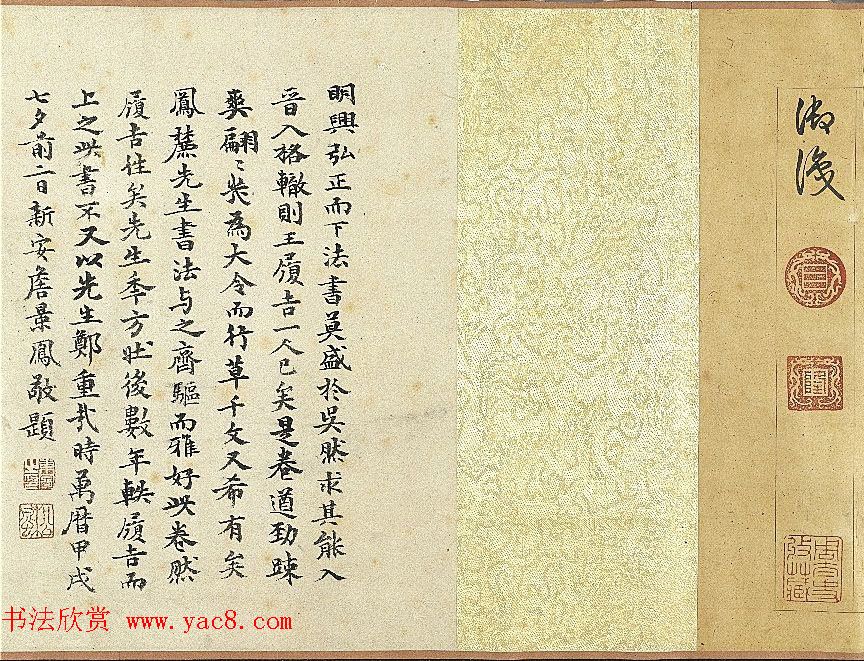 明興弘正而下法書莫盛於吳然求其能入
晉人格轍則王履吉一人已矣是卷遒勁踈
爽翩〻祑為大令而行草千文又希有矣
鳳麓先生書法与之齊驅而雅好此卷然
履吉往矣先生季方壯後數年軼履吉而
上之此書不又以先生鄭重哉時萬曆甲戌
七夕前二日新安詹景鳳敬題
书法欣赏 www.yac8.com